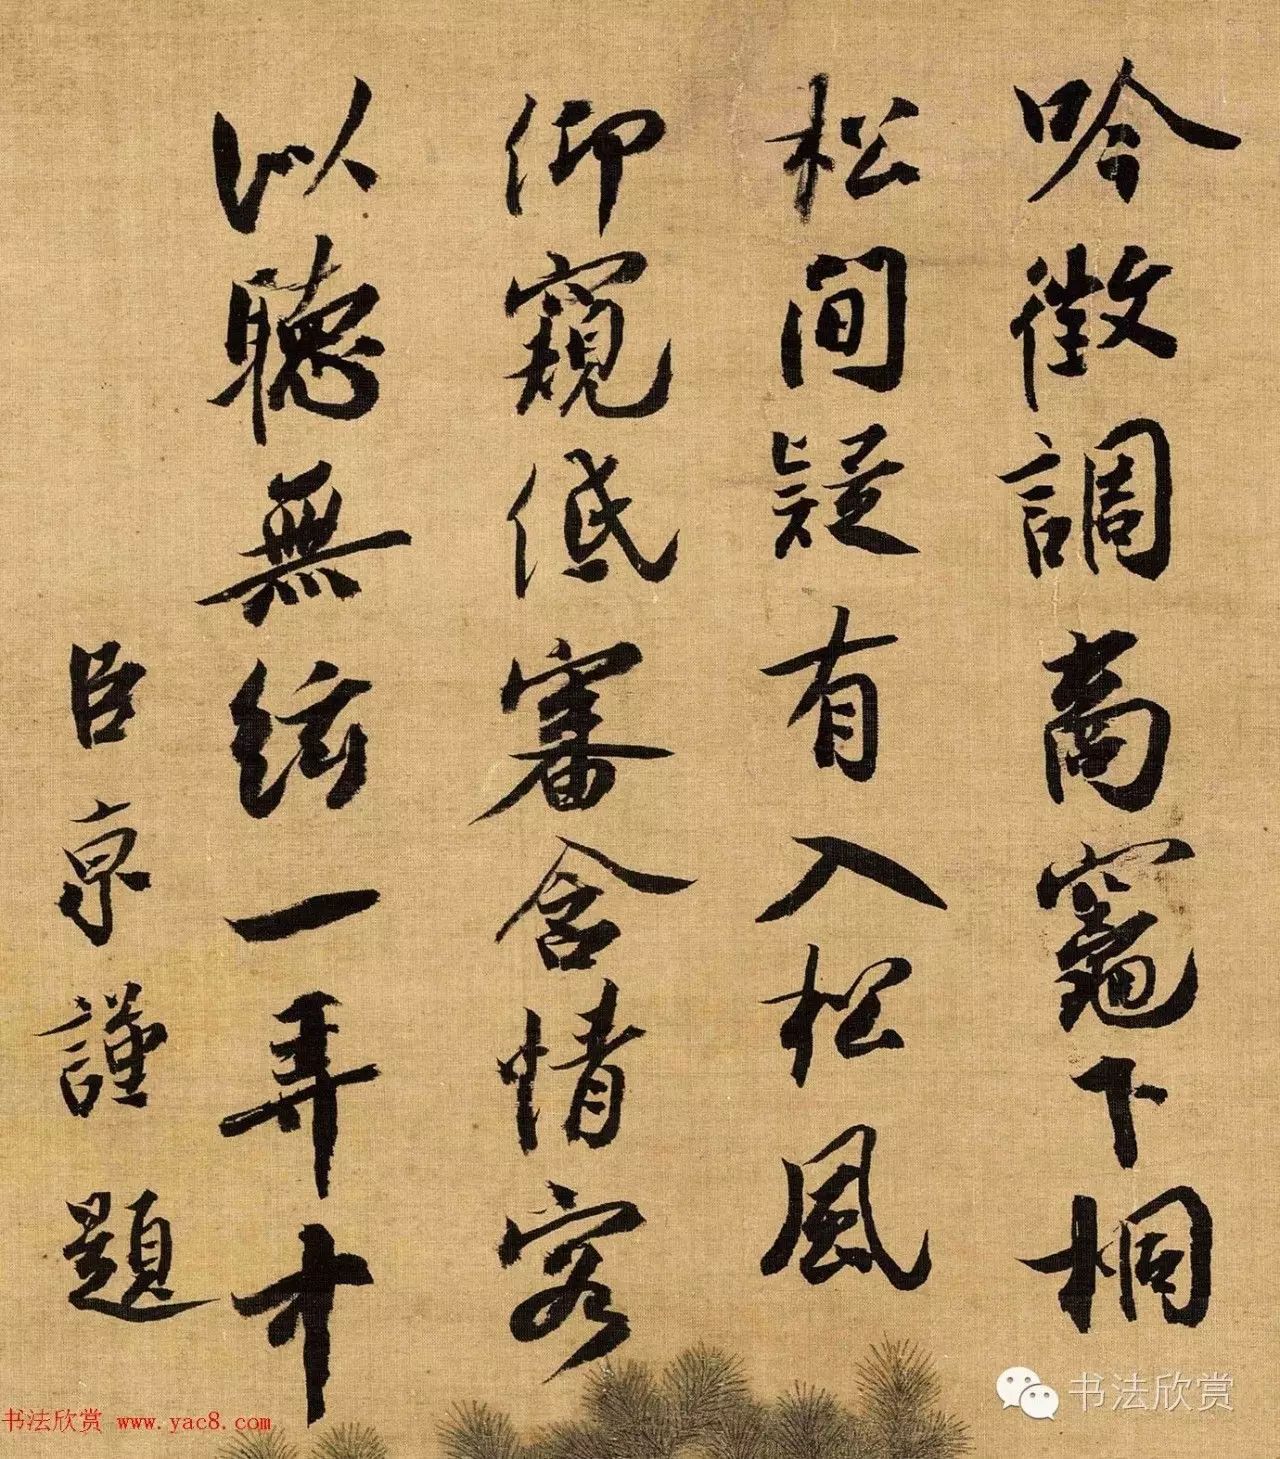 吟徵調商竈下桐
松間疑有入松風
仰窺低審含情客
以聽無絃一弄中
臣京謹題
书法欣赏 www.yac8.com
书法欣赏